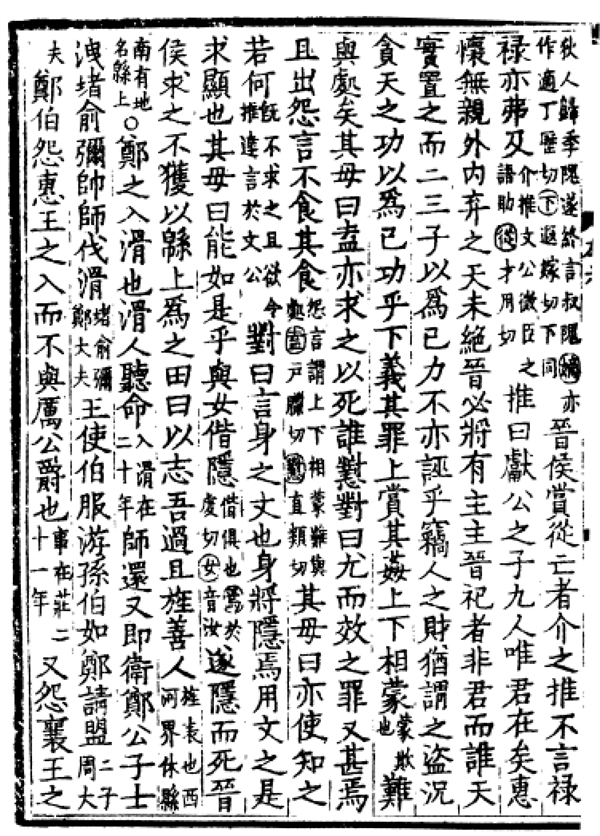 狄人歸季隗遂終言叔隗嫡亦作適丁歷切下遐嫁切下同晉侯賞從亡者介之推不言祿
祿亦弗及介推文公微臣之語助從才用切推曰獻公之子九人唯君在矣惠
懷無親外內弃之天未絕晉必將有主主晉祀者非君而誰天
實置之而二三子以爲己力不亦誣乎竊人之財猶謂之盜況
貪天之功以爲己功乎下義其罪上賞其姦上下相蒙蒙欺也難
與處矣其母曰盍亦求之以死誰懟對曰尤而效之罪又甚焉
且出怨言不食其食怨言謂上下相蒙難與處盍戶臘切懟直類切其母曰亦使知之
若何旣不求之且欲令推達言於文公對曰言身之文也身將隱焉用文之是
求顯也其母曰能如是乎與女偕隱偕俱也焉於虔切女音汝遂隱而死晉
侯求之不獲以緜上爲之田曰以志吾過且旌善人旌表也西河界休縣
南有地名緜上○鄭之入滑也滑人聽命入滑在二十年師還又即衛鄭公子士
洩堵俞彌帥師伐滑堵俞彌鄭大夫王使伯服游孫伯如鄭請盟二子周大
夫鄭伯怨惠王之入而不與厲公爵也事在莊二十一年又怨襄王之